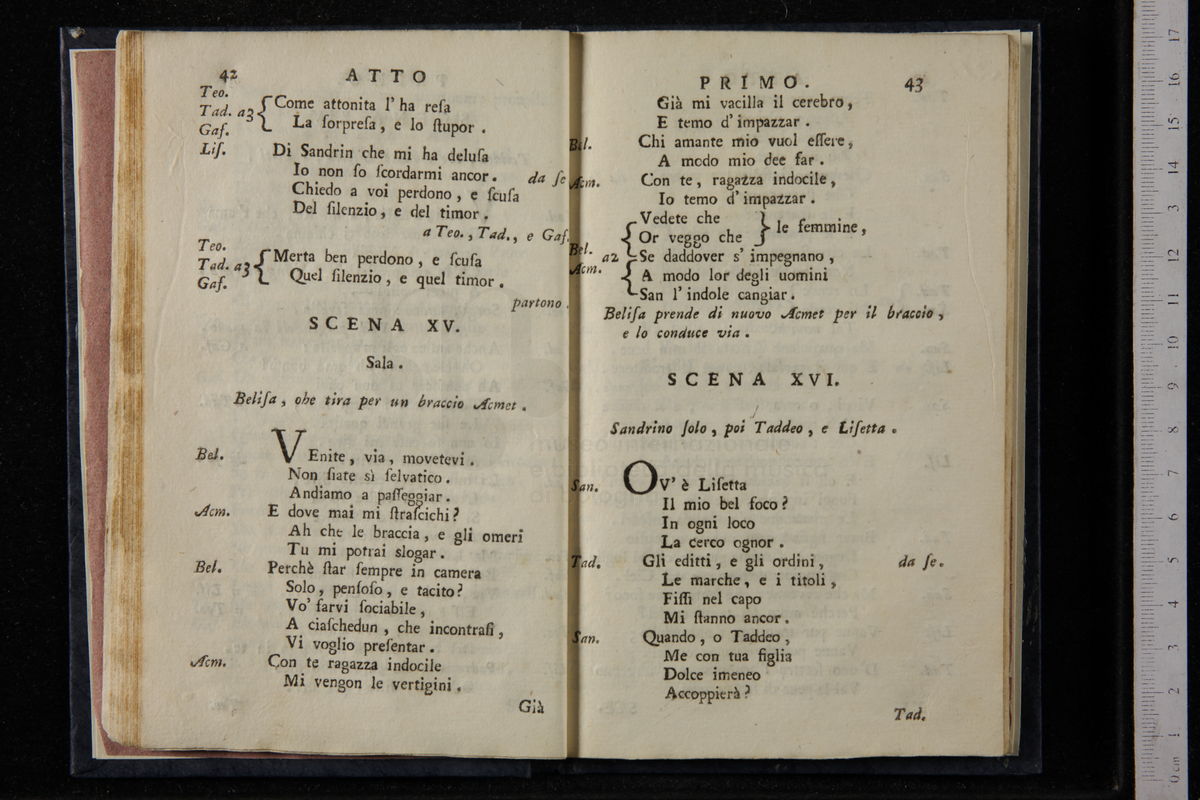 42 ATTO
Teo.
Tad. a3 Come attonita l' ha reſa
Gaſ. La ſorpreſa, e lo ſtupor.
Liſ. Di Sandrin che mi ha deluſa
Io non ſo ſcordarmi ancor. da ſe
Chiedo a voi perdono, e ſcuſa
Del ſilenzio, e del timor.
a Teo., Tad., e Gaſ.
Teo.
Tad. a3 Merta ben perdono, e ſcuſa
Gaſ. Quel ſilenzio, e quel timor.
partono.
SCENA XV.
Sala.
Beliſa, che tira per un braccio Acmet.
Bel. VEnite, via, movetevi.
Non ſiate sì ſelvatico.
Andiamo a paſſeggiar.
Acm. E dove mai mi ſtraſcichi?
Ah che le braccia, e gli omeri
Tu mi potrai slogar.
Bel. Perchè ſtar ſempre in camera
Solo, penſoſo, e tacito?
Vo' farvi ſociabile,
A ciaſchedun, che incontraſi,
Vi voglio preſentar.
Acm. Con te ragazza indocile
Mi vengon le vertigini.
Già
PRIMO. 43
Già mi vacilla il cerebro,
E temo d' impazzar.
Bel. Chi amante mio vuol eſſere,
A modo mio dee far.
Acm. Con te, ragazza indocile,
Io temo d' impazzar.
Vedete che
Or veggo che le femmine,
Bel. a2 Se daddover s' impegnano,
Acm. A modo lor degli uomini
San l' indole cangiar.
Beliſa prende di nuovo Acmet per il braccio,
e lo conduce via.
SCENA XVI.
Sandrino ſolo, poi Taddeo, e Liſetta.
San. OV' è Liſetta
Il mio bel foco?
In ogni loco
La cerco ognor.
Tad. Gli editti, e gli ordini, da ſe.
Le marche, e i titoli,
Fiſſi nel capo
Mi ſtanno ancor.
San. Quando, o Taddeo,
Me con tua figlia
Dolce imeneo
Accoppierà?
Tad.